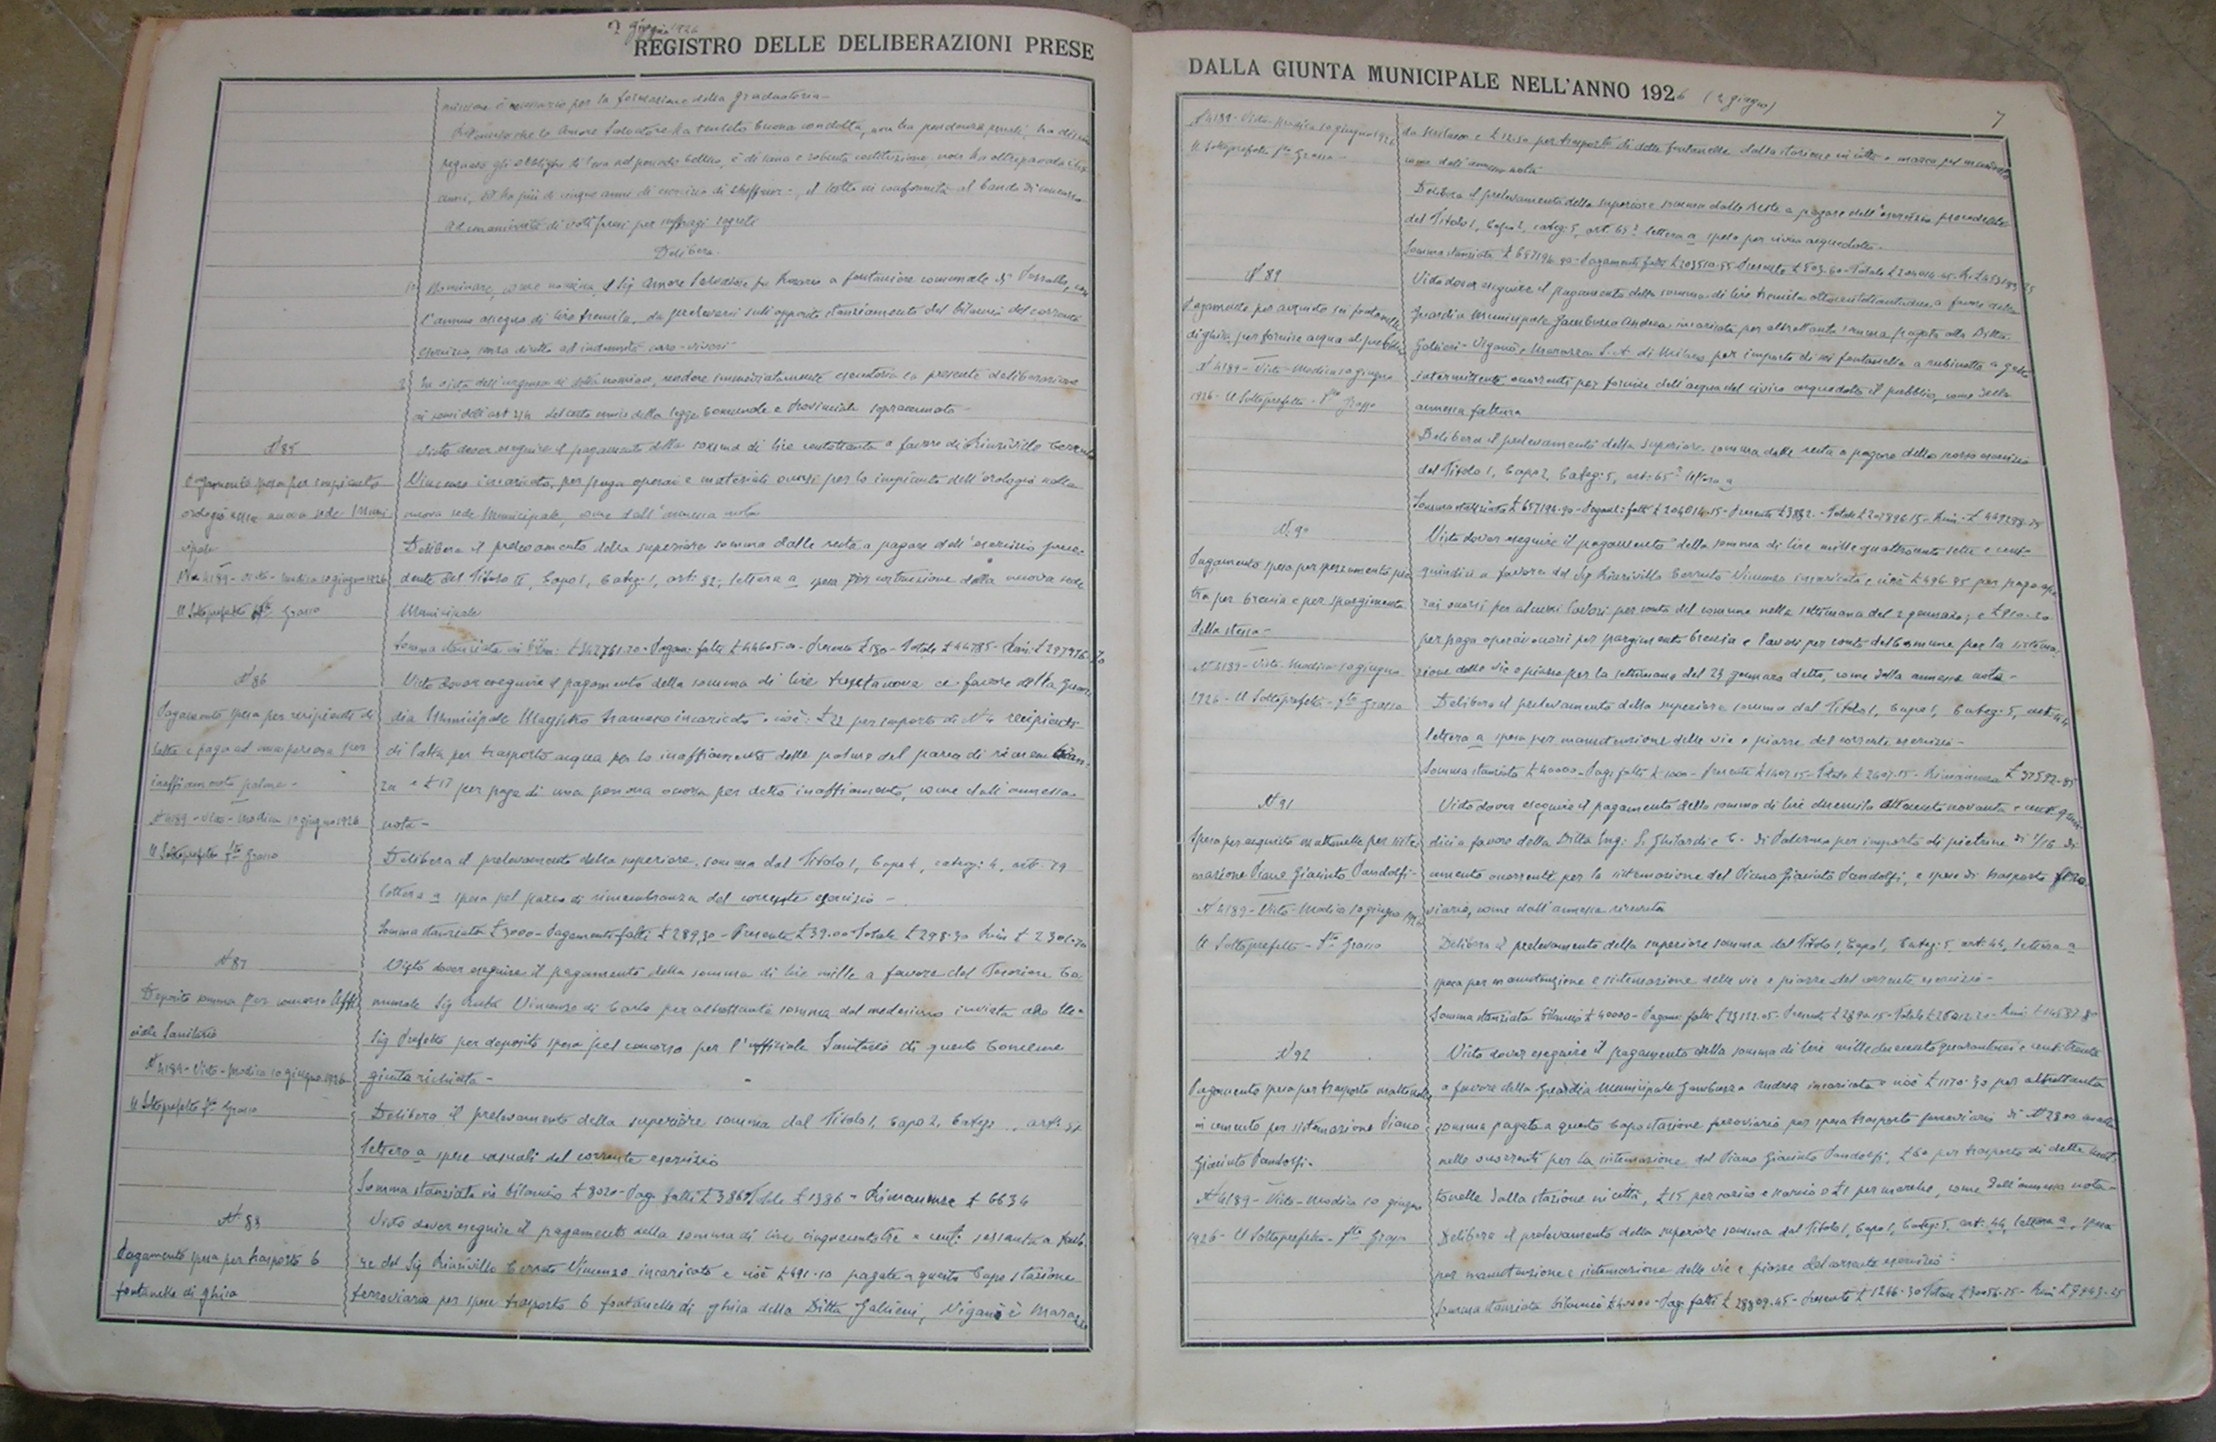 2 giugno 1926
REGISTRO DELLE DELIBERAZIONI PRESE
missione è necessario per la formazione della graduatoria -
Ritenuto che lo Amore Salvatore ha tenuto buona condotta, non ha pendenze penali, ha
è di sana e robusta costituzione, non ha oltrepassato
anni, ed ha più di cinque anni di servizio di in conformità al bando di concorso
Ad unanimità di voti presi per suffragi segreti
Delibera
Nominare, come nomina, il Sig Amore Salvatore fu Rosario a fontaniere comunale di
l'annuo assegno di lire tremila, da prelevarsi sull'apposito stanziamento del bilancio del corrente
esercizio, senza diritto ad indennità caro-viveri
2 In vista dell'urgenza di tale nomina, rendere immediatamente esecutoria la presente deliberazione
ai sensi dell'art della legge Comunale e Provinciale
N 85
Pagamento spesa per impianto
orologio nella nuova sede Muni
cipale
N 4189 - Visto - Modica 10 giugno 1926
Il Sottoprefetto Grasso
Visto dover eseguire il pagamento della somma di lire centottanta a favore di Rinzivillo Cerruto
Vincenzo incaricato, per paga operai e materiali occorsi per lo impianto dell'orologio nella
nuova sede Municipale, come dall'annessa nota
Delibera il prelevamento della superiore somma dalle resta a pagare dell'esercizio prece-
dente del Titolo II, Capo 1, Categ: 1, art: 82, lettera a spesa per costruzione della nuova sede
Municipale
Somma stanziata in bilan: £ 342761.20 - Pagam: fatti £ 44605.00 - Presente £ 180 - Totale £ 44785 - Rim: £ 297976.20
N 86
Pagamento spesa per recipienti di
latta e paga ad una persona per
inaffiamento palme -
N 4189 - Visto - Modica 10 giugno 1926
Il Sottoprefetto Fto Grasso
Visto dover eseguire il pagamento della somma di lire trentanove a favore della Guar
dia Municipale Magistro Francesco incaricato e cioè: £ 22 per importo di N 4 recipienti
di latta per trasporto acqua per lo inaffiamento delle palme del parco di rimembran-
za e £ 17 per paga di una persona occorsa per detto inaffiamento, come dall'annessa
nota -
Delibera il prelevamento della superiore somma dal Titolo 1, Capo 4, categ: 4, art: 79
lettera a spesa pel parco di rimembranza del corrente esercizio -
Somma stanziata £ 3000 - Pagamenti fatti - Presente £ 39.00 Totale
N 87
Deposito somma per concorso Uffi
ciale Sanitario
N 4189 - Visto - Modica 10 giugno 1926
Il Sottoprefetto Fto Grasso
Visto dover eseguire il pagamento della somma di lire mille a favore del Tesoriere Co
munale Sig Vincenzo di Carlo per altrettanta somma dal medesimo inviata allo Ill-
Sig Prefetto per deposito spesa pel concorso per l'ufficiale Sanitario di questo Comune
giusta richiesta -
Delibera il prelevamento della superiore somma dal Titolo 1, Capo 2, Categ:
lettera a spese casuali del corrente esercizio
Somma stanziata in bilancio £ 8020 - Pag: fatti Totale £ 1386 - Rimanenze £ 6634
N 88
Pagamento spesa per trasporto 6
fontanelle di ghisa
Visto dover eseguire il pagamento della somma di lire cinquecentotré e cent: sessanta a favo
re del Sig Rinzivillo Cerruto Vincenzo incaricato e cioè £ 491.10 pagate a questo Capo stazione
ferroviario per spese trasporto 6 fontanelle di ghisa della Ditta Galtieri, Viganò e Marazza
DALLA GIUNTA MUNICIPALE NELL'ANNO 1926 (2 giugno)
7
N 4189 - Visto - Modica 10 giugno 1926
Il Sottoprefetto Fto Grasso -
da Milano e £ 12.50 per trasporto di dette fontanelle dalla stazione in città e marca pel mandato
come dall'annessa nota
Delibera il prelevamento della superiore somma dalle Resta a pagare dell'esercizio precedente
del Titolo 1, Capo 2, categ: 5, art: 65² lettera a spesa per civico acquedotto -
Somma stanziata £ 657194.90 - Pagamenti fatti £ 203510.55 - Presente £ 503.60 - Totale £ 204014.15
N 89
Pagamento per acquisto sei fontanelle
di ghisa per fornire acqua al pubblico
N 4189 - Visto - Modica 10 giugno
1926 - Il Sottoprefetto - Fto Grasso
Visto dover eseguire il pagamento della somma di lire tremila ottocentottantadue a favore della
Guardia Municipale Gambuzza Andrea incaricata per altrettanta somma pagata alla Ditta
Galtieri - Viganò e Marazza S.A. di Milano per importo di sei fontanelle a rubinetto a getto
intermittente occorrenti per fornire dell'acqua del civico acquedotto il pubblico, come dalla
annessa fattura
Delibera il prelevamento della superiore somma dalle resta a pagare dello scorso esercizio
del Titolo 1, Capo 2, Categ: 5, art: 65² lettera a
Somma stanziata £ 657194.90 - Pagam: fatti £ 204014.15 - Presente £ 3882 - Totale £ 207896.15 - Rim: £ 449298.75
N 90
Pagamento spesa per spezzamento pie
tra per breccia e per spargimento
della stessa -
N 4189 - Visto - Modica 10 giugno
1926 - Il Sottoprefetto - Fto Grasso
Visto dover eseguire il pagamento della somma di lire mille quattrocento sette e cent:
quindici a favore del Sig Rinzivillo Cerruto Vincenzo incaricato e cioè £ 496.95 per paga ope
rai occorsi per alcuni lavori per conto del comune nella settimana del 2 gennaio; e £ 910.20
per paga operai occorsi per spargimento breccia e lavori per conto del Comune per la sistema
zione delle vie e piazze per la settimana del 23 gennaio detto, come dalla annessa nota -
Delibera il prelevamento della superiore somma dal Titolo 1, Capo 1, Categ: 5, art: 44
lettera a spesa per manutenzione delle vie e piazze del corrente esercizio -
Somma stanziata £ 40000 - Pag: fatti £ 1000 - Presente £ 1407.15 - Totale £ 2407.15 - Rimanenza £ 37592.85
N 91
Spesa per acquisto mattonelle per siste
mazione Piano Giacinto Pandolfi -
N 4189 - Visto - Modica 10 giugno 1926
Il Sottoprefetto - Fto Grasso
Visto dover eseguire il pagamento della somma di lire duemila ottocento novanta e cent: quin
dici a favore della Ditta Ing: S. Ghilardi e C. di Palermo per importo di pietrine di 1/16 di
cemento occorrenti per la sistemazione del Piano Giacinto Pandolfi, e spese di trasporto ferro
viario, come dall'annessa ricevuta
Delibera il prelevamento della superiore somma dal Titolo 1, Capo 1, Categ: 5 art: 44, lettera a
spesa per manutenzione e sistemazione delle vie e piazze del corrente esercizio -
Somma stanziata bilancio £ 40000 - Pagam: fatti - Presente £ 2890.15 - Totale
N 92
Pagamento spesa per trasporto mattonelle
in cemento per sistemazione Piano
Giacinto Pandolfi -
N 4189 - Visto - Modica 10 giugno
1926 - Il Sottoprefetto - Fto Grasso
Visto dover eseguire il pagamento della somma di lire mille duecento quarantasei e cent: trenta
a favore della Guardia Municipale Gambuzza Andrea incaricata e cioè £ 1170.30 per altrettanta
somma pagata a questo Capo stazione ferroviario per spesa trasporto ferroviario di N 2800 matto
nelle occorrenti per la sistemazione del Piano Giacinto Pandolfi, £ 60 per trasporto di dette mat
tonelle dalla stazione in città, £ 15 per carico e scarico e £ 1 per marche, come dall'annessa nota -
Delibera il prelevamento della superiore somma dal Titolo 1, Capo 1, Categ: 5, art: 44, lettera a, spesa
per manutenzione e sistemazione delle vie e piazze del corrente esercizio -
Somma stanziata bilancio £ 40000 - Pag: fatti £ 28809.45 - Presente £ 1246.30 Totale £ 30055.75 - Rim: £